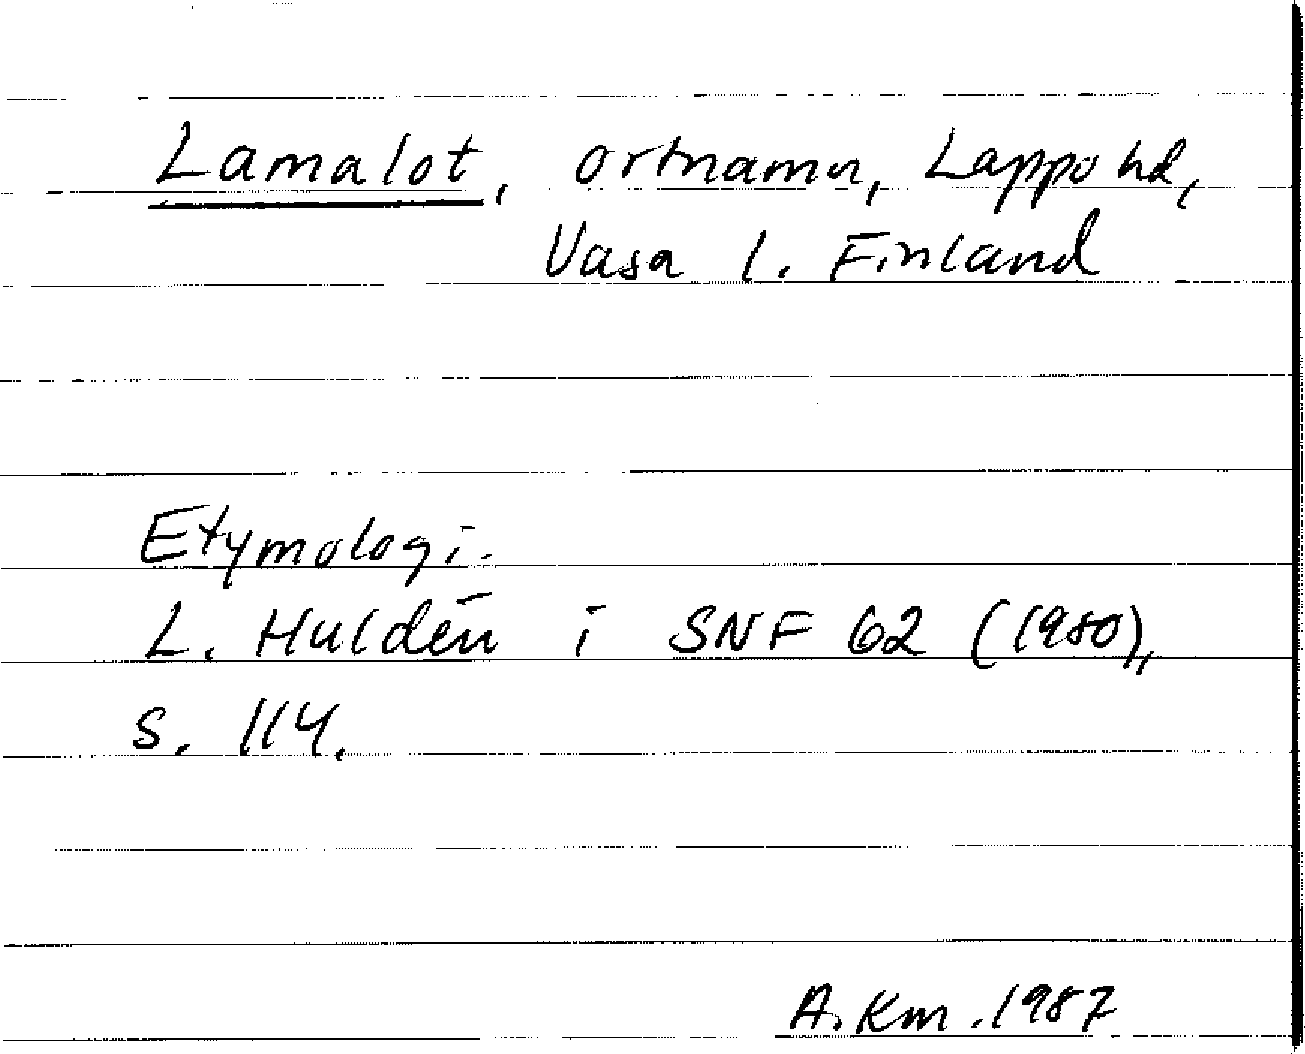 Lamalot, ortnamn, Lappo hd,
Vasa l. Finland
Etymologi.
L. Huldén i SNF 62 (1980),
s. 114.
A. Km. 1987